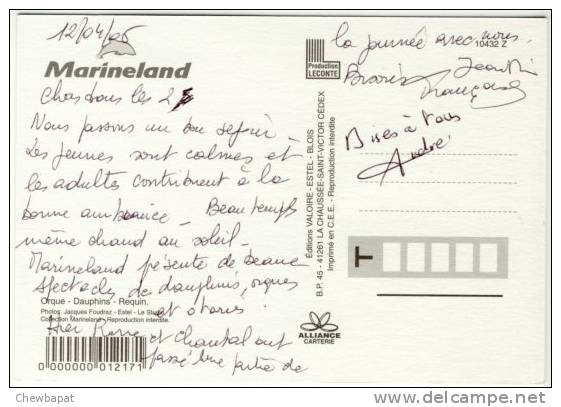 12/04/06
Marineland
Chas tous les 2
Nous passons un bon séjour -
Les jeunes sont calmes et
les adultes contribuent à la
bonne ambiance - Beau temps
même chaud au soleil -
Marineland présente de beaux
spectacles de dauphins, orques
et otaries.
Orque - Dauphins - Requin.
Photos: Jacques Foudraz - Estel - Le Studio
Collection Marineland - Reproduction interdite.
Hier Pierre et Chantal ont
passé une partie de
0 000000 012171
Editions VALOIRE - ESTEL - BLOIS
B.P. 45 - 41261 LA CHAUSSEE-SAINT-VICTOR CEDEX
Imprimé en C.E.E. - Reproduction interdite
Production
LECONTE
10432 Z
la journée avec nous.
Bises à tous
André
T
ALLIANCE
CARTERIE
Chewbapat
delcampe.net